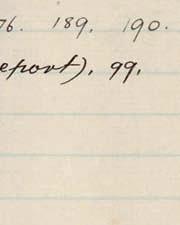 76. 189. 190.
eport). 99.